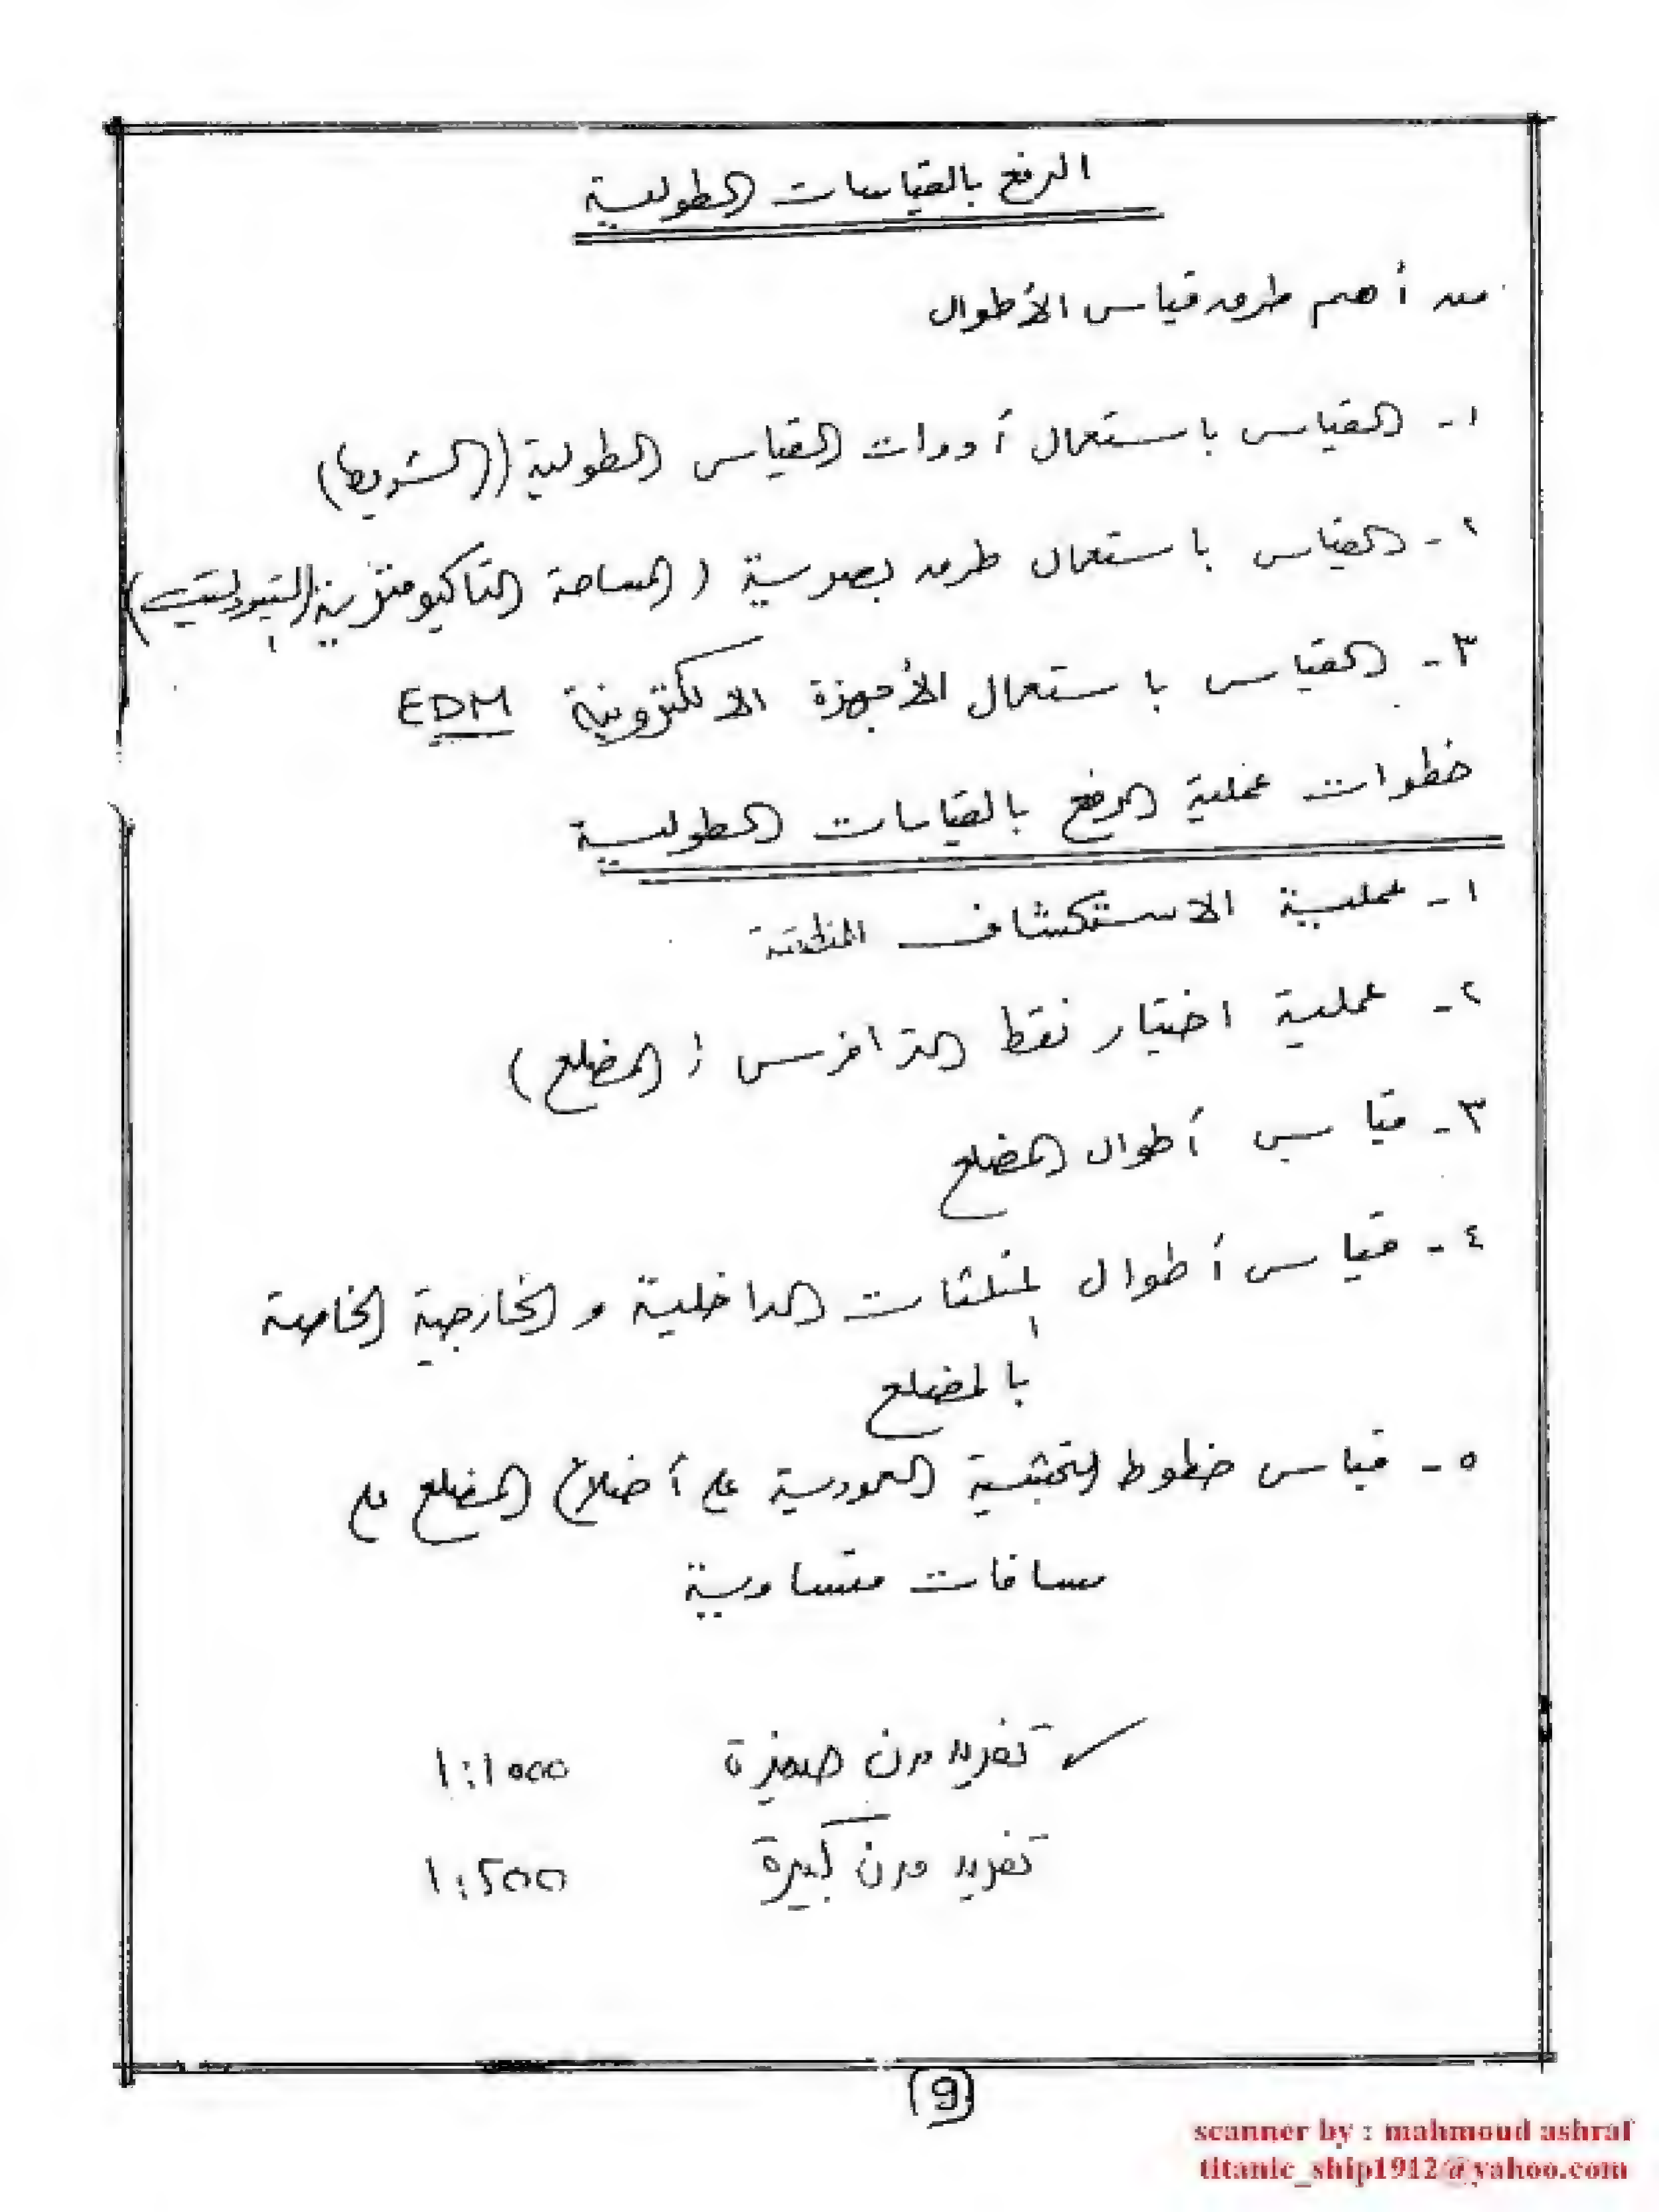 الرفع بالقياسات الطولية
من أهم طرق قياس الأطوال
١- القياس باستعمال أدوات القياس الطولية ((الشريط)
٢- القياس باستعمال طرق بصرية (المساحة التاكيومترية (التيودليت)
٣- القياس باستعمال الأجهزة الالكترونية EDM
خطوات عملية الرفع بالقياسات الطولية
١- عملية الاستكشاف المنطقة
٢- عملية اختيار نقط الترافرس (المضلع)
٣- قياس أطوال المضلع
٤- قياس أطوال المثلثات الداخلية و الخارجية الخاصة
بالمضلع
٥- قياس خطوط التحشية العمودية على أضلاع المضلع على
مسافات متساوية
تفريد مدن صغيرة ١:١٠٠٠
تفريد مدن كبيرة ١:٥٠٠
(9)
scanner by : mahmoud ashraf
titanic_ship1912@yahoo.com